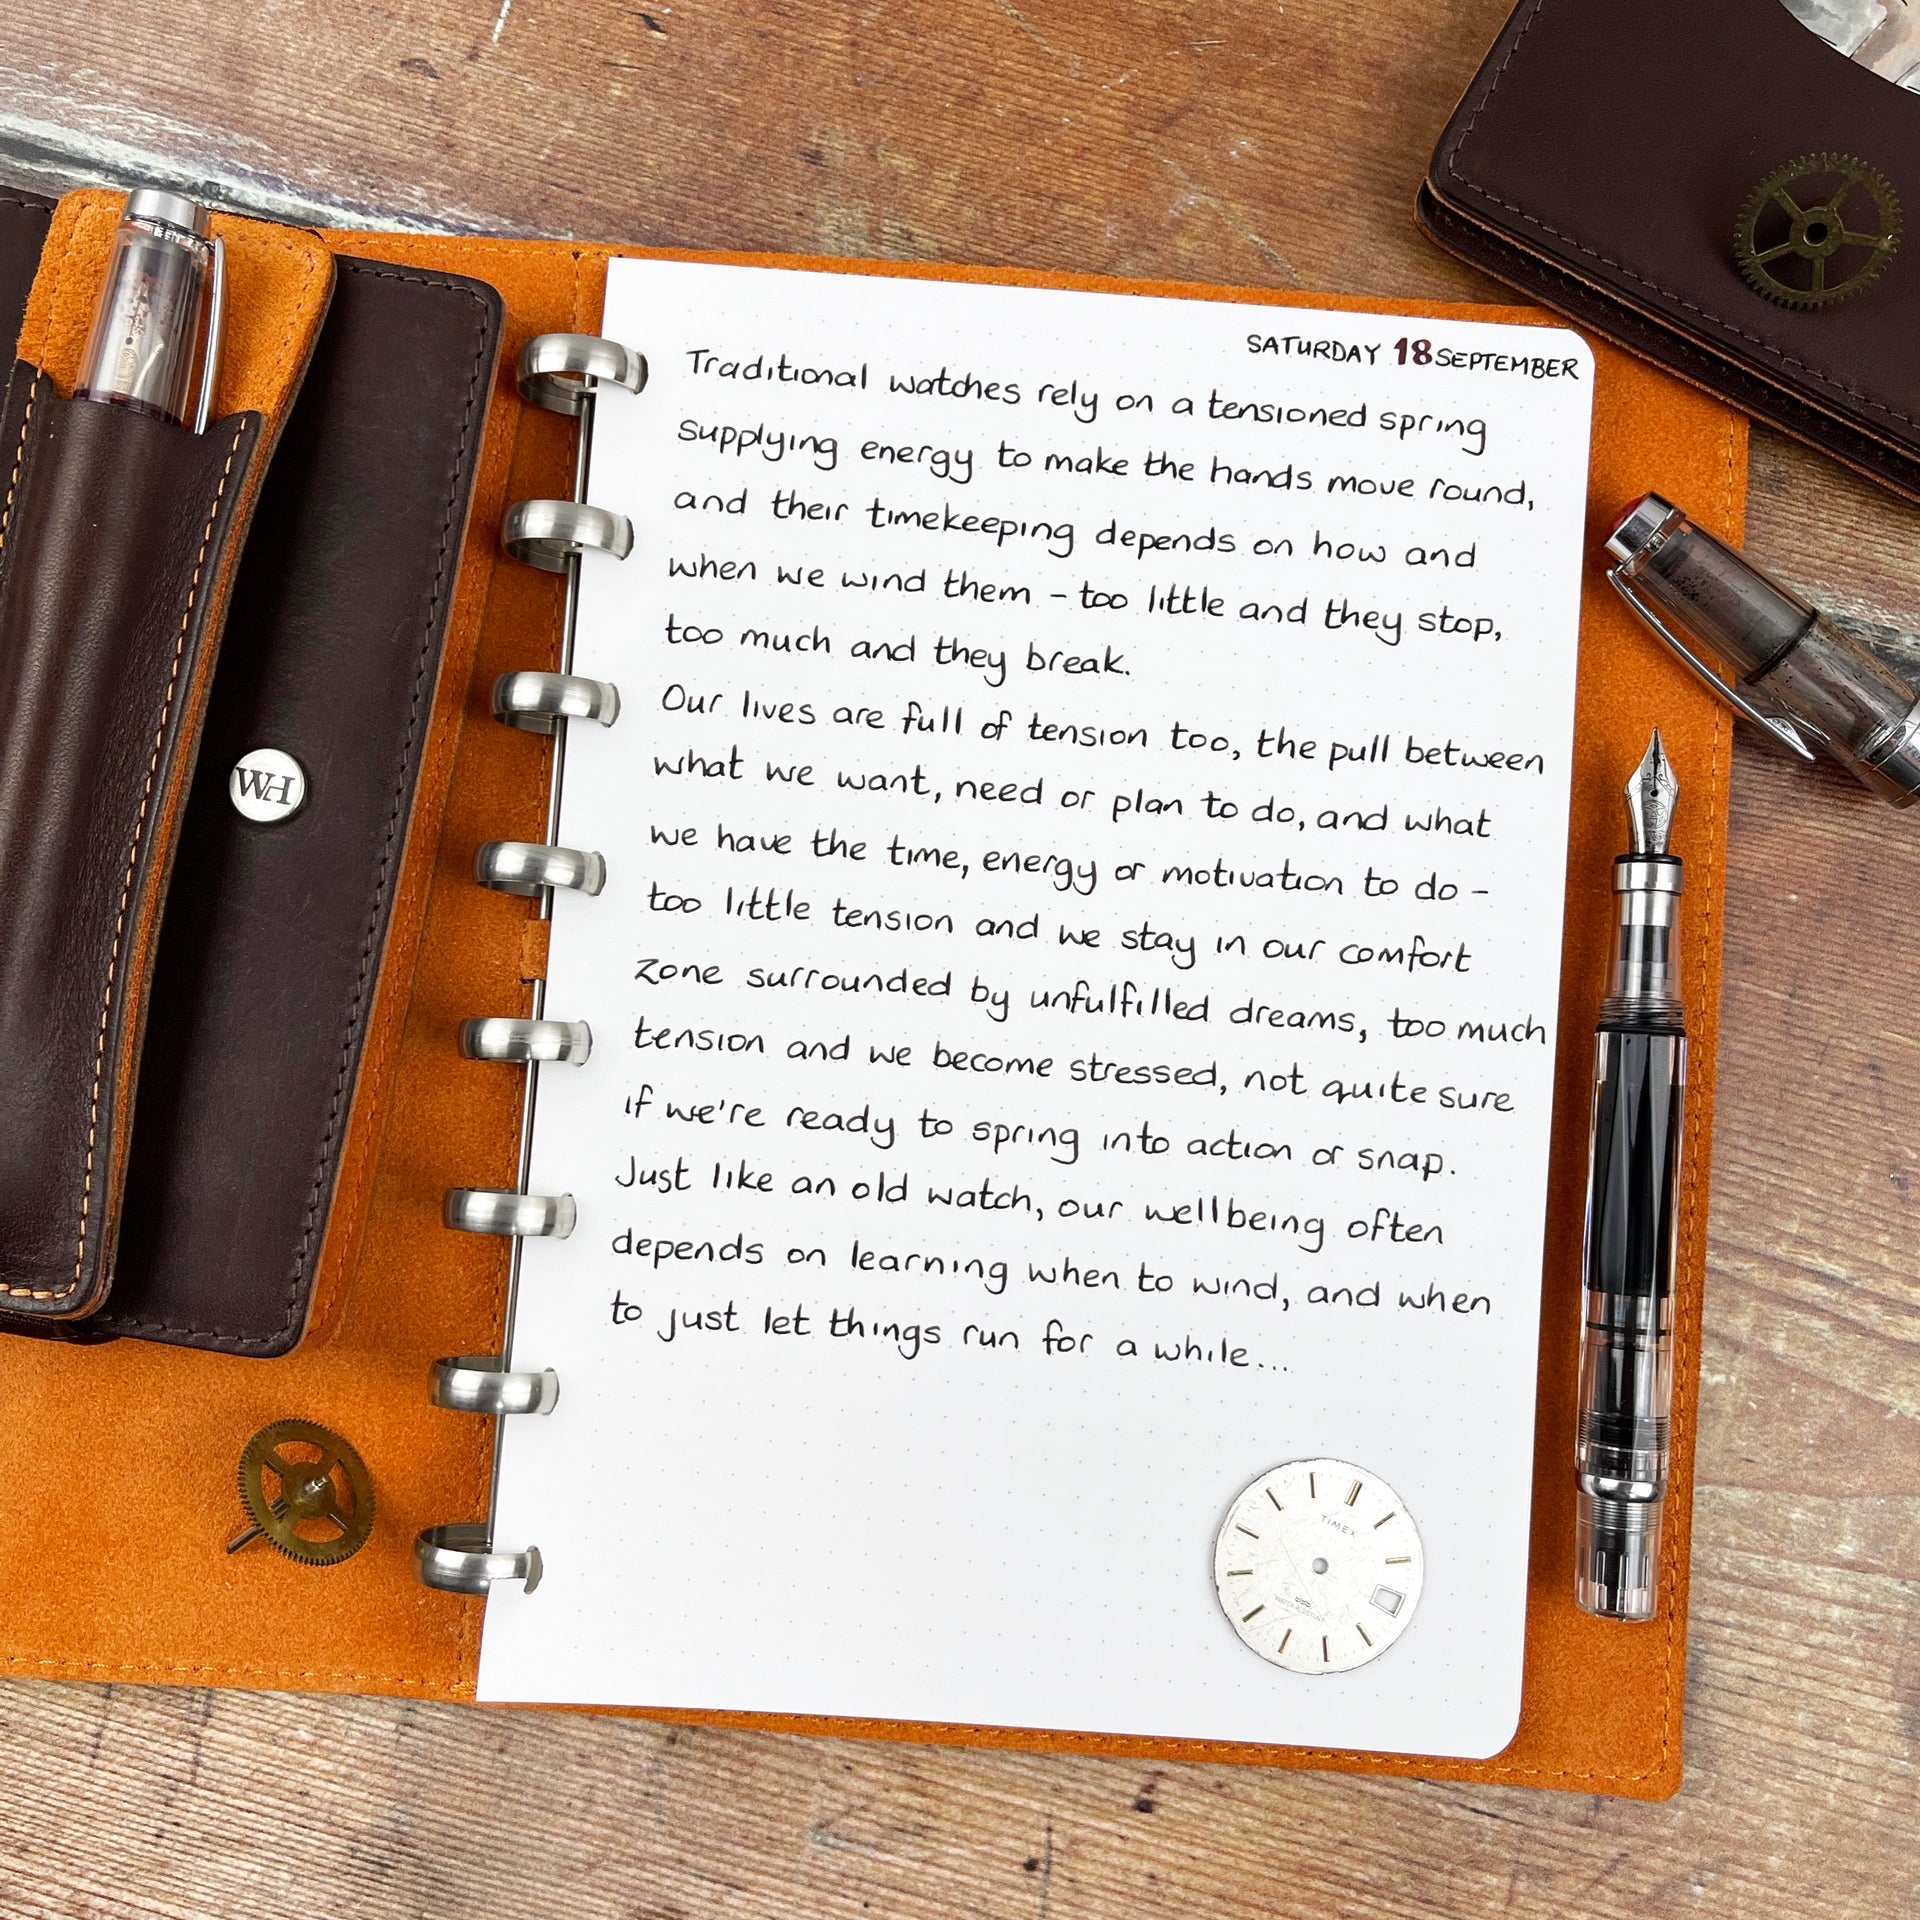 SATURDAY 18 SEPTEMBER
Traditional watches rely on a tensioned spring
supplying energy to make the hands move round,
and their timekeeping depends on how and
when we wind them - too little and they stop,
too much and they break.
Our lives are full of tension too, the pull between
what we want, need or plan to do, and what
we have the time, energy or motivation to do -
too little tension and we stay in our comfort
zone surrounded by unfulfilled dreams, too much
tension and we become stressed, not quite sure
if we're ready to spring into action or snap.
Just like an old watch, our wellbeing often
depends on learning when to wind, and when
to just let things run for a while...
WH
TIMEX